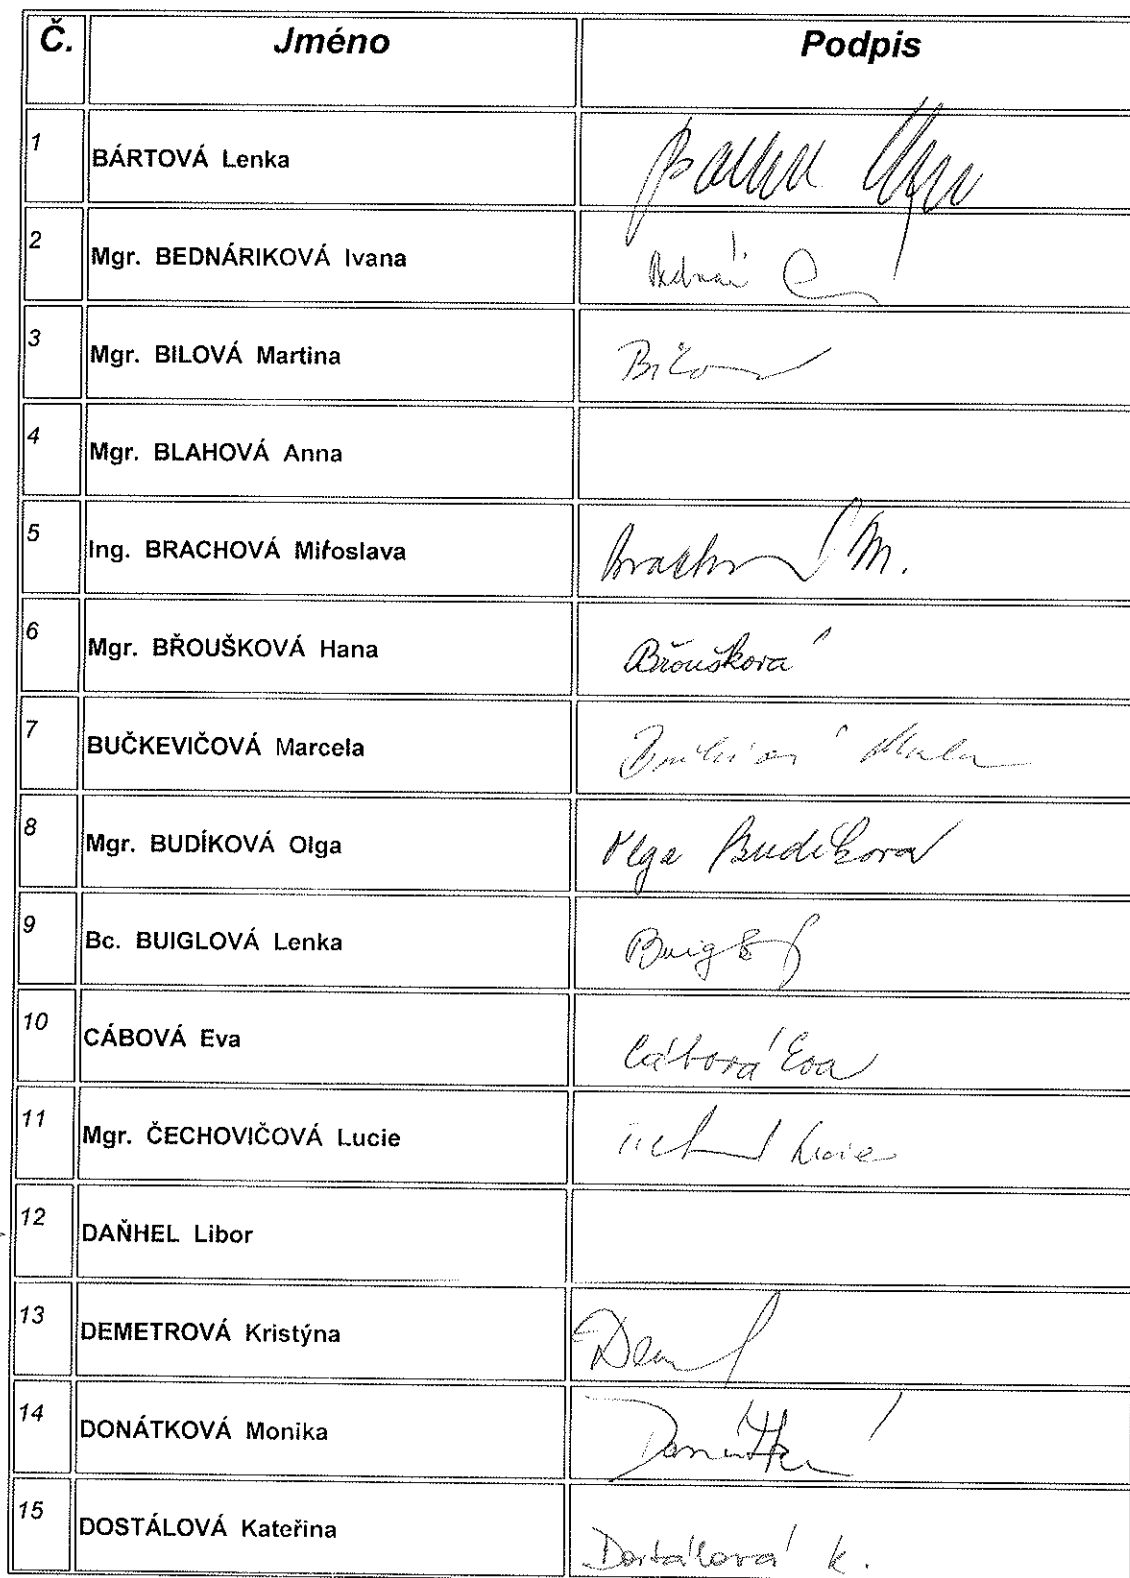 Č. Jméno Podpis
1 BÁRTOVÁ Lenka
2 Mgr. BEDNÁRIKOVÁ Ivana
3 Mgr. BILOVÁ Martina
4 Mgr. BLAHOVÁ Anna
5 Ing. BRACHOVÁ Miroslava M.
6 Mgr. BŘOUŠKOVÁ Hana Břoušková
7 BUČKEVIČOVÁ Marcela
8 Mgr. BUDÍKOVÁ Olga Olga Budíková
9 Bc. BUIGLOVÁ Lenka
10 CÁBOVÁ Eva Cábová Eva
11 Mgr. ČECHOVIČOVÁ Lucie Lucie
12 DAŇHEL Libor
13 DEMETROVÁ Kristýna
14 DONÁTKOVÁ Monika
15 DOSTÁLOVÁ Kateřina Dostálová K.